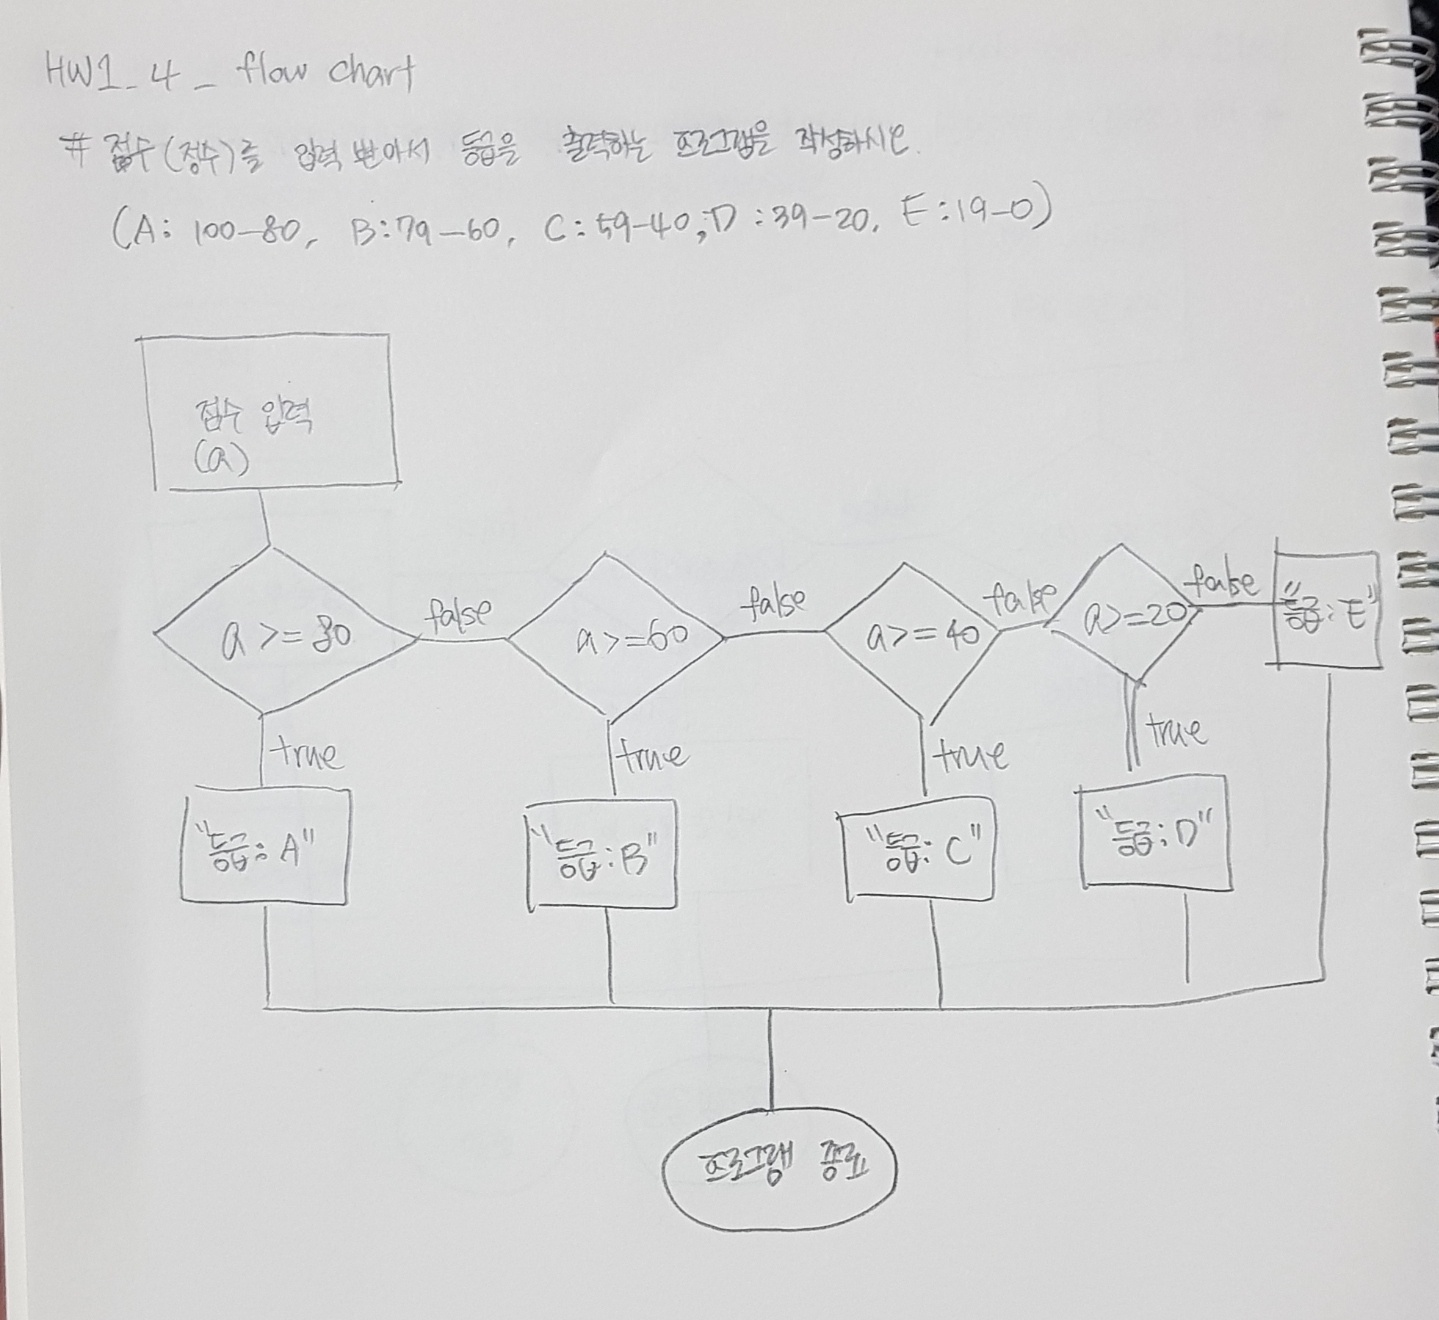 HW1_4_ flow chart
# 점수(정수)를 입력 받아서 등급을 출력하는 프로그램을 작성하시오.
(A: 100-80, B:79-60, C:59-40, D:39-20, E:19-0)
점수 입력
(a)
a>=80
false
a>=60
false
a>=40
false
a>=20
false
"등급:E"
true
true
true
true
"등급:A"
"등급:B"
"등급:C"
"등급:D"
프로그램 종료